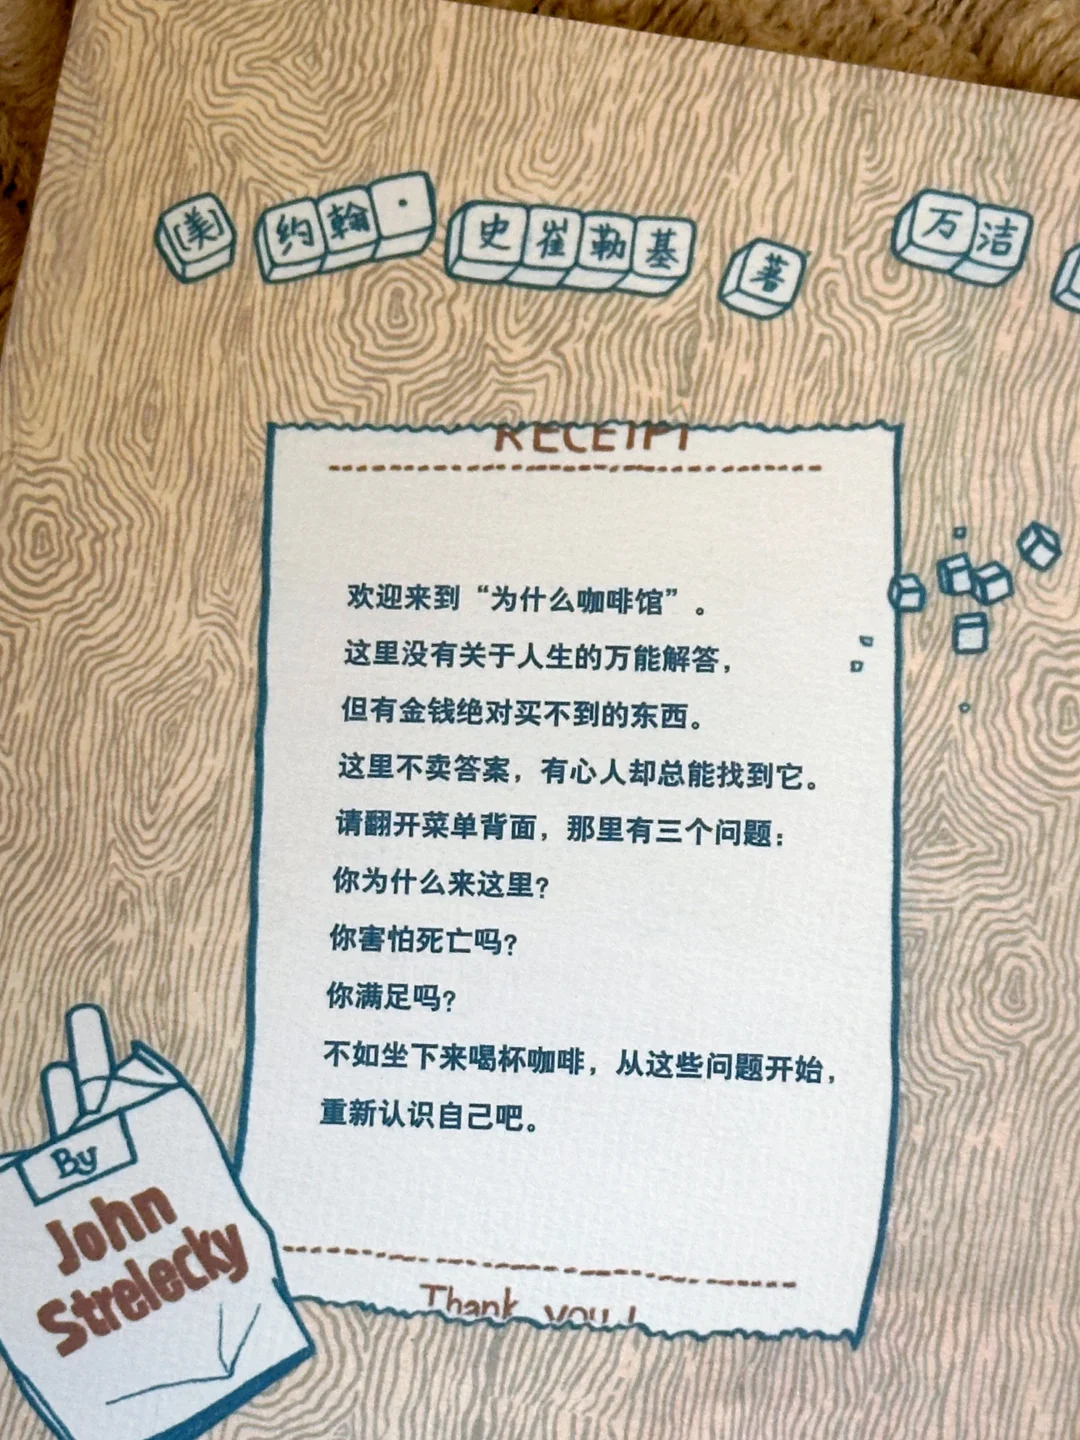 [美] 约翰· 史崔勒基 著 万洁
RECEIPT
欢迎来到“为什么咖啡馆”。
这里没有关于人生的万能解答，
但有金钱绝对买不到的东西。
这里不卖答案，有心人却总能找到它。
请翻开菜单背面，那里有三个问题：
你为什么来这里？
你害怕死亡吗？
你满足吗？
不如坐下来喝杯咖啡，从这些问题开始，
重新认识自己吧。
Thank you!
By
John
Strelecky